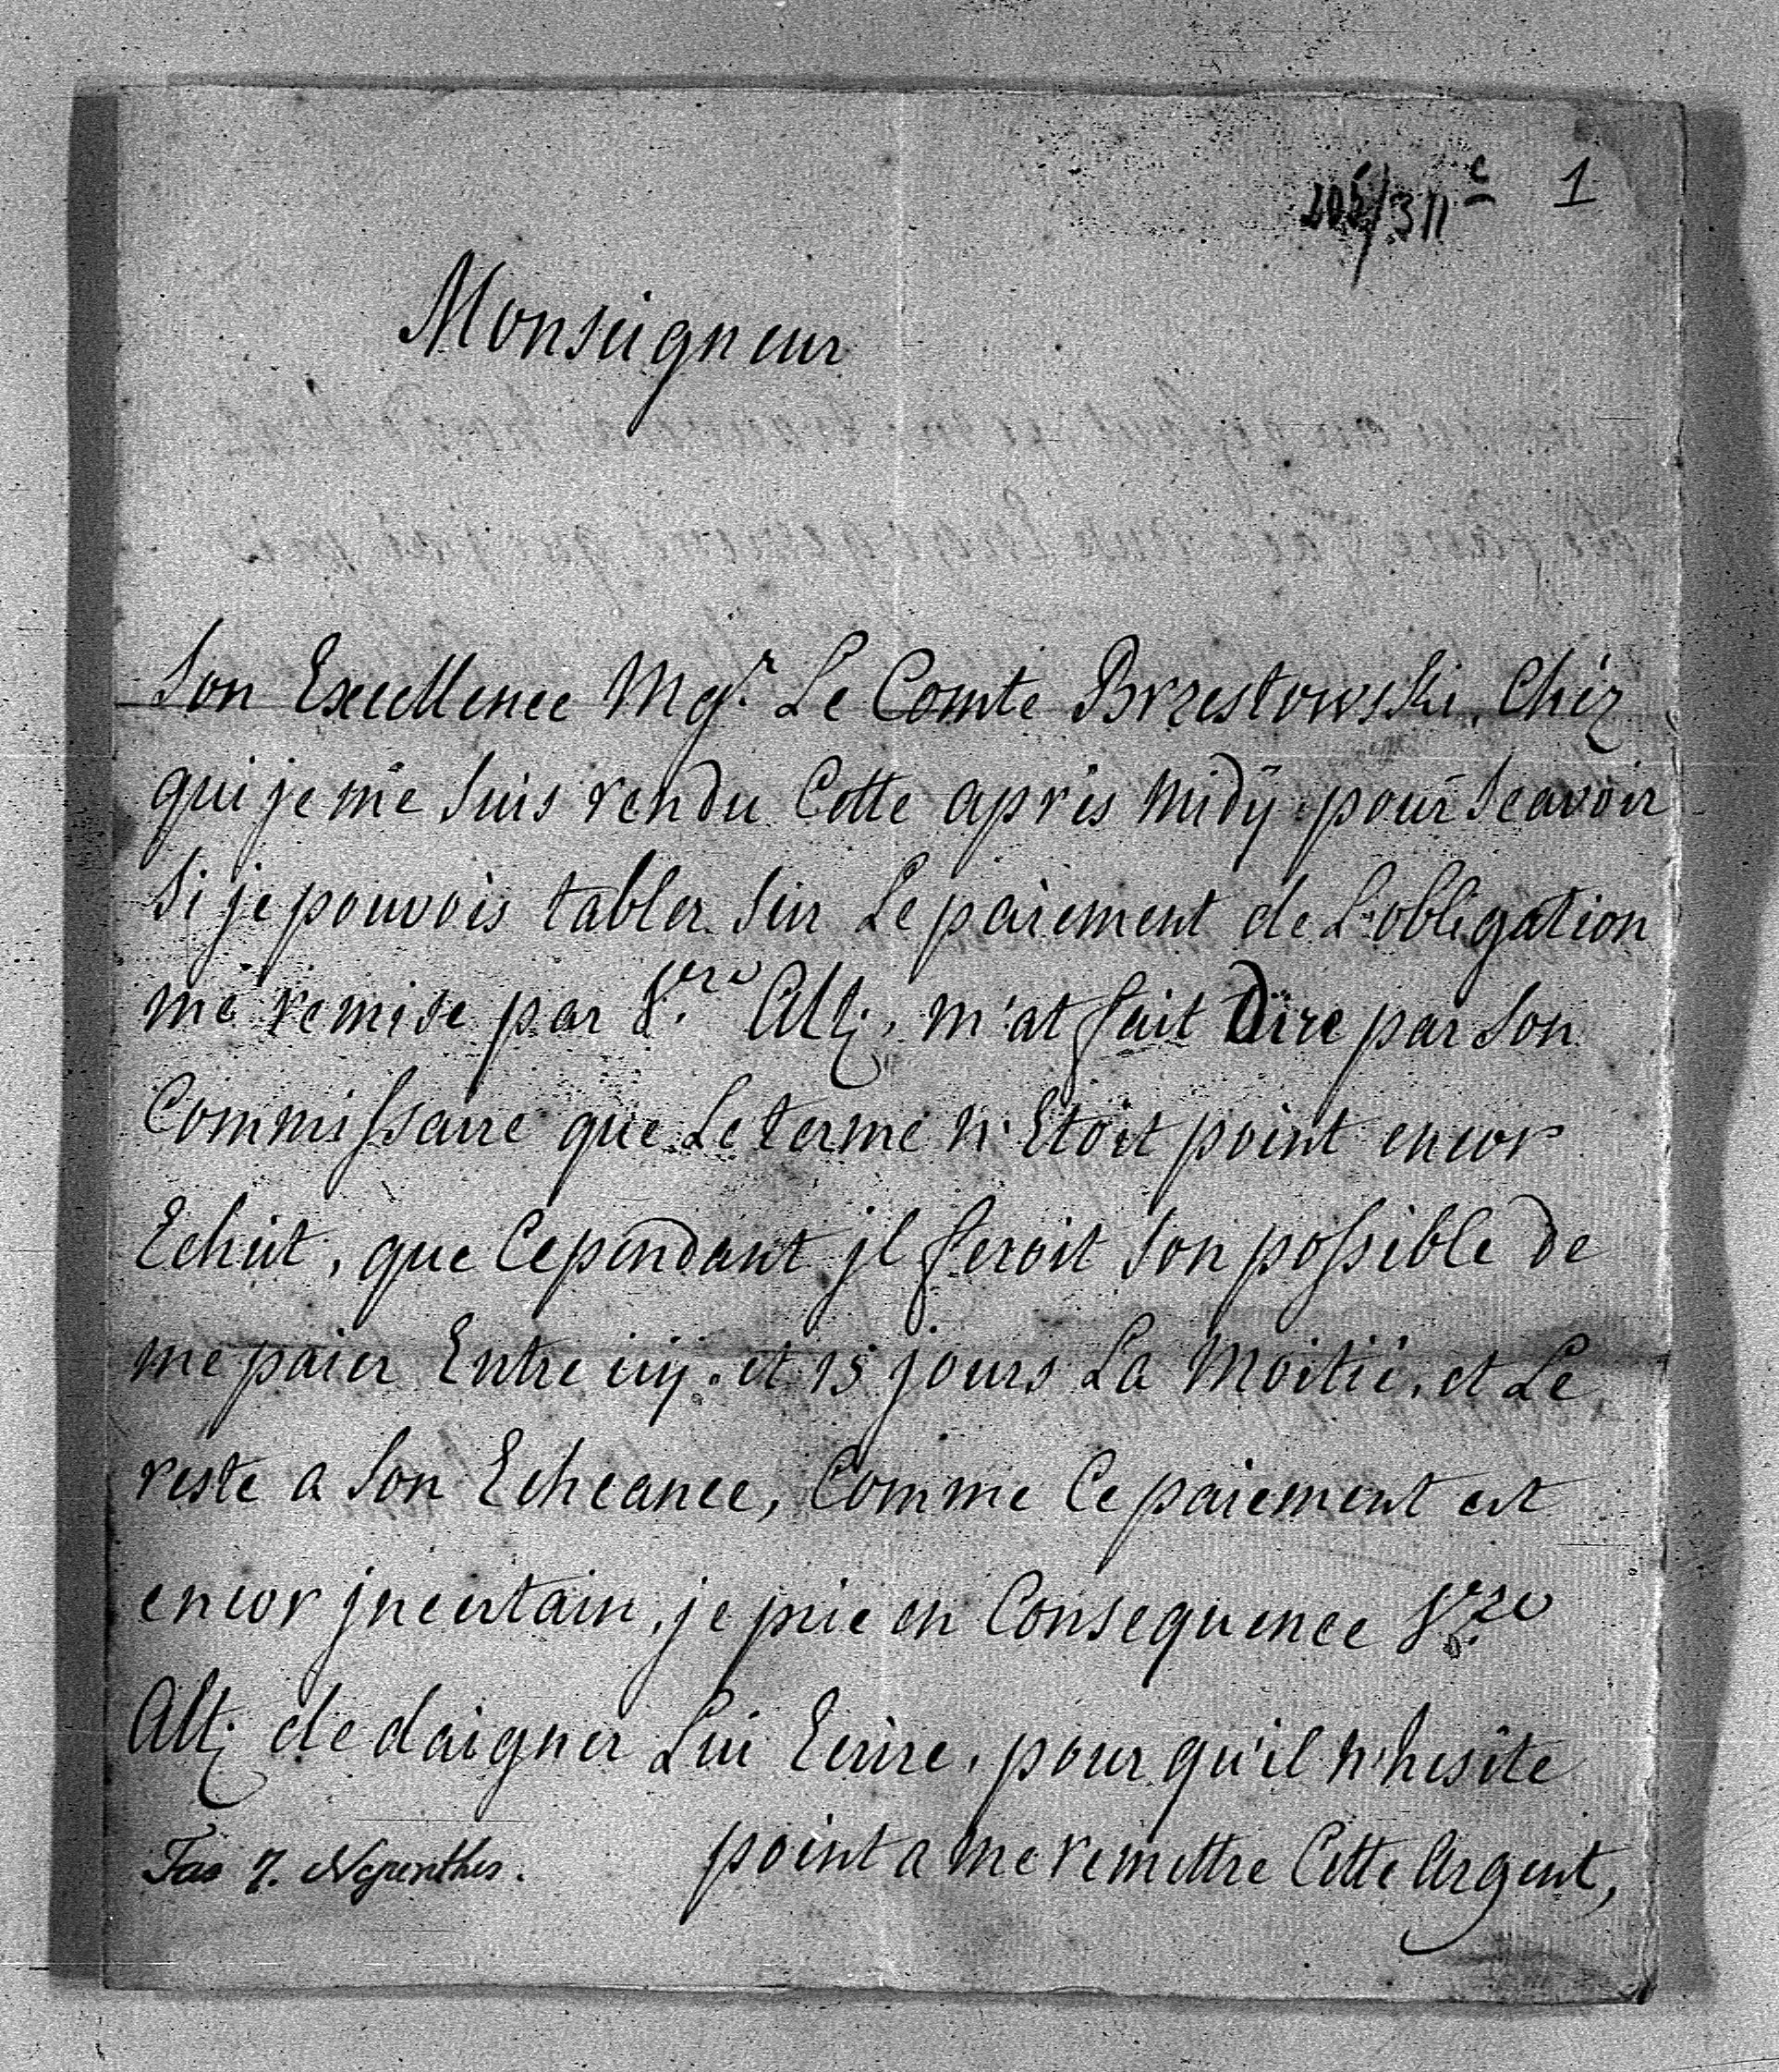 1
Monseigneur
Son Excellence Mgr. Le Comte Brzestowski, Chéz
qui je me suis rendu Cette aprés midÿ pour Scavoir
Si je pouvois tabler Sur Le paiement de L'obligation
me remise par V.re Alt:, m'at fait Dire par Son
Commissaire que Le terme n'Etoit point encor
Echut, que Cependant jl feroit Son possible de
me paier Entre icy. et 15 jours La Moitié. et Le
reste a Son Echeance, Comme Ce paiement est
encor jncertain, je prie en Consequence V.re
Alt: de daigner Lui Ecrire, pour qu'il n'hesite
point a me remettre Cette Argent,